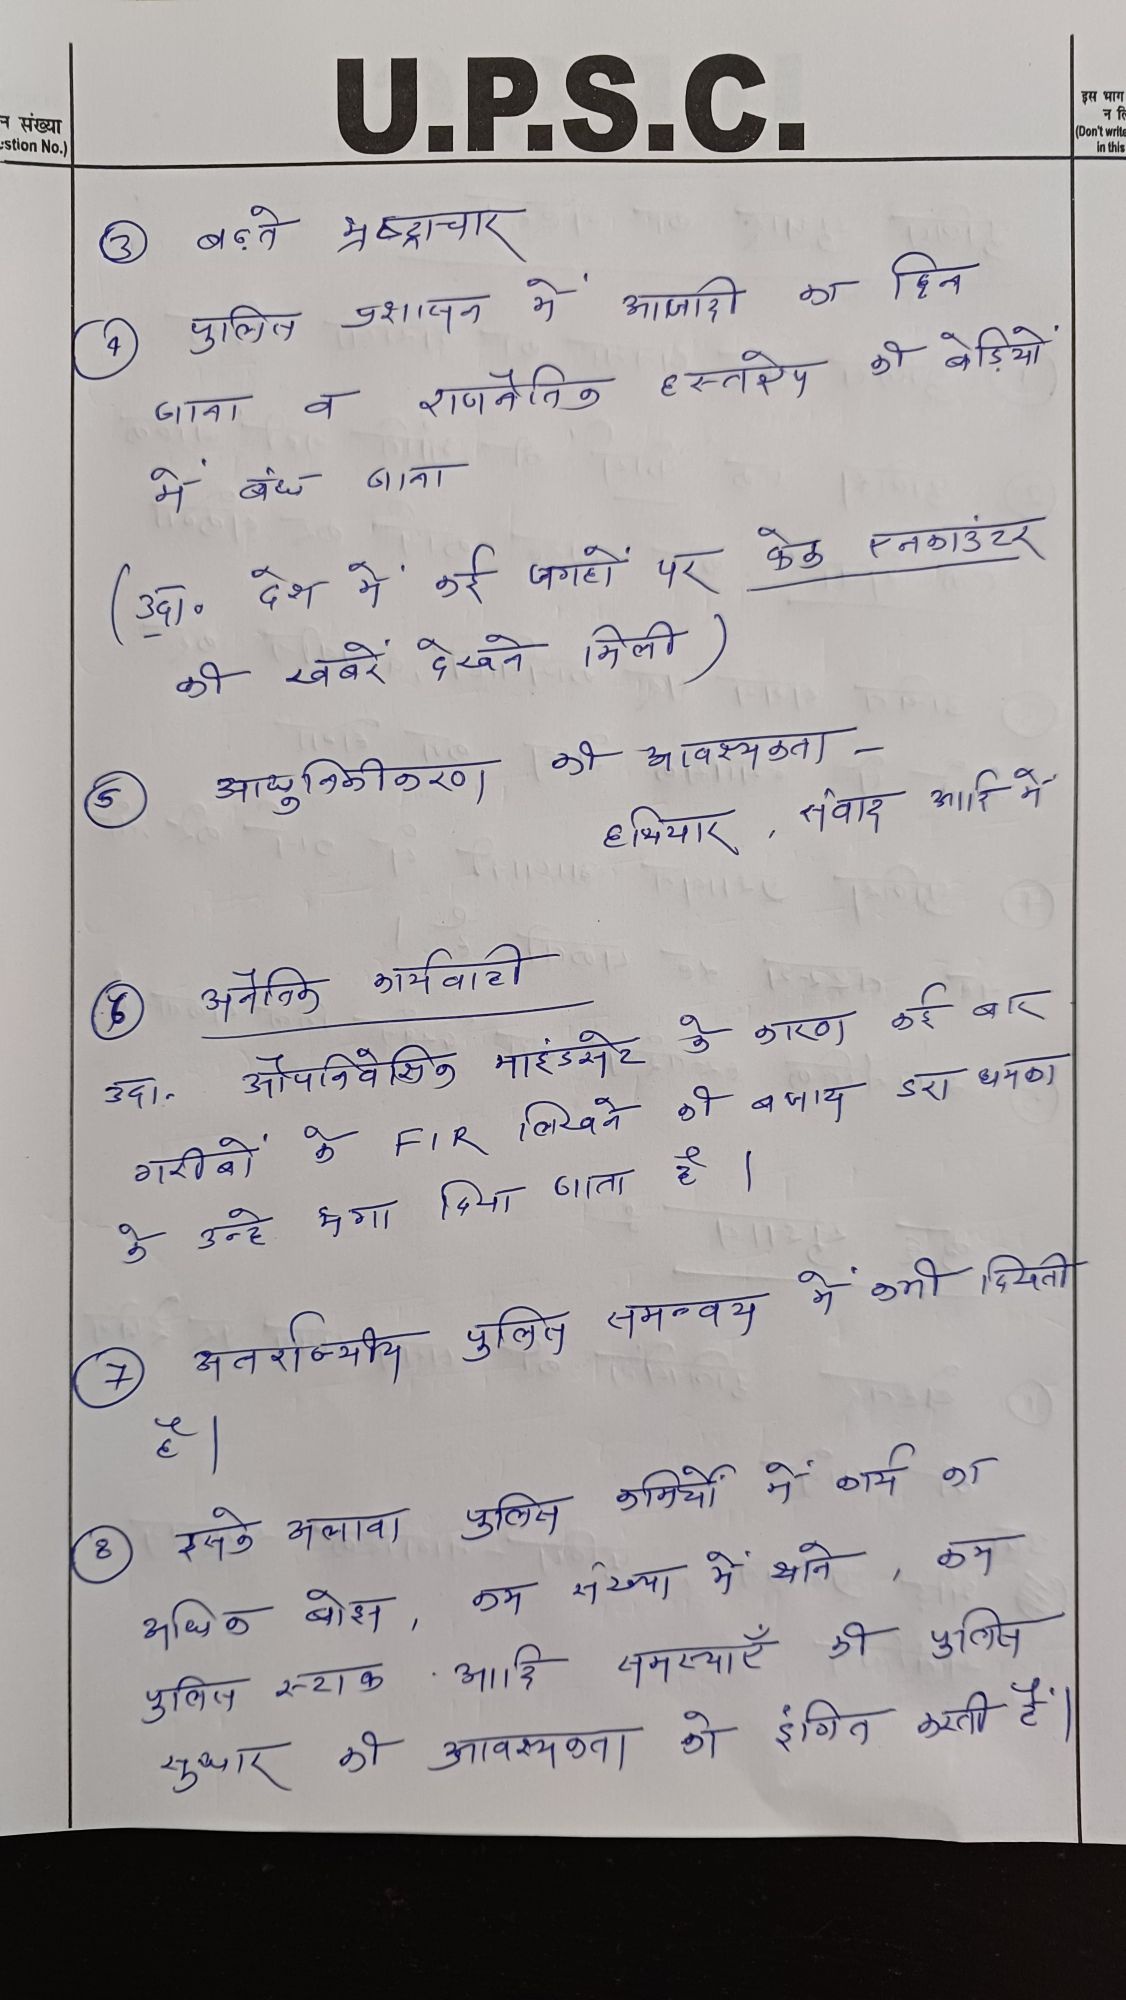 न संख्या
stion No.)
U.P.S.C.
इस भाग
(Don't write
in this
③ बढ़ते भ्रष्ट्राचार
④ पुलिस प्रशासन में आजादी का छिन
जाना व राजनैतिक हस्तक्षेप की बेड़ियों
में बंध जाना
(उदा. देश में कई जगहों पर फेक एनकाउंटर
की खबरें देखने मिली)
⑤ आधुनिकीकरण की आवश्यकता –
हथियार, संवाद आदि में
⑥ अनैतिक कार्यवाही
उदा. औपनिवेसिक माइंडसेट के कारण कई बार
गरीबों के FIR लिखने की बजाय डरा धमका
के उन्हे भगा दिया जाता है।
⑦ अतर्राज्यीय पुलिस समन्वय में कमी दिखती
है।
⑧ इसके अलावा पुलिस कर्मियों में कार्य का
अधिक बोझ, कम संख्या में थाने, कम
पुलिस स्टाफ आदि समस्याएँ की पुलिस
सुधार की आवश्यकता को इंगित करती हैं।